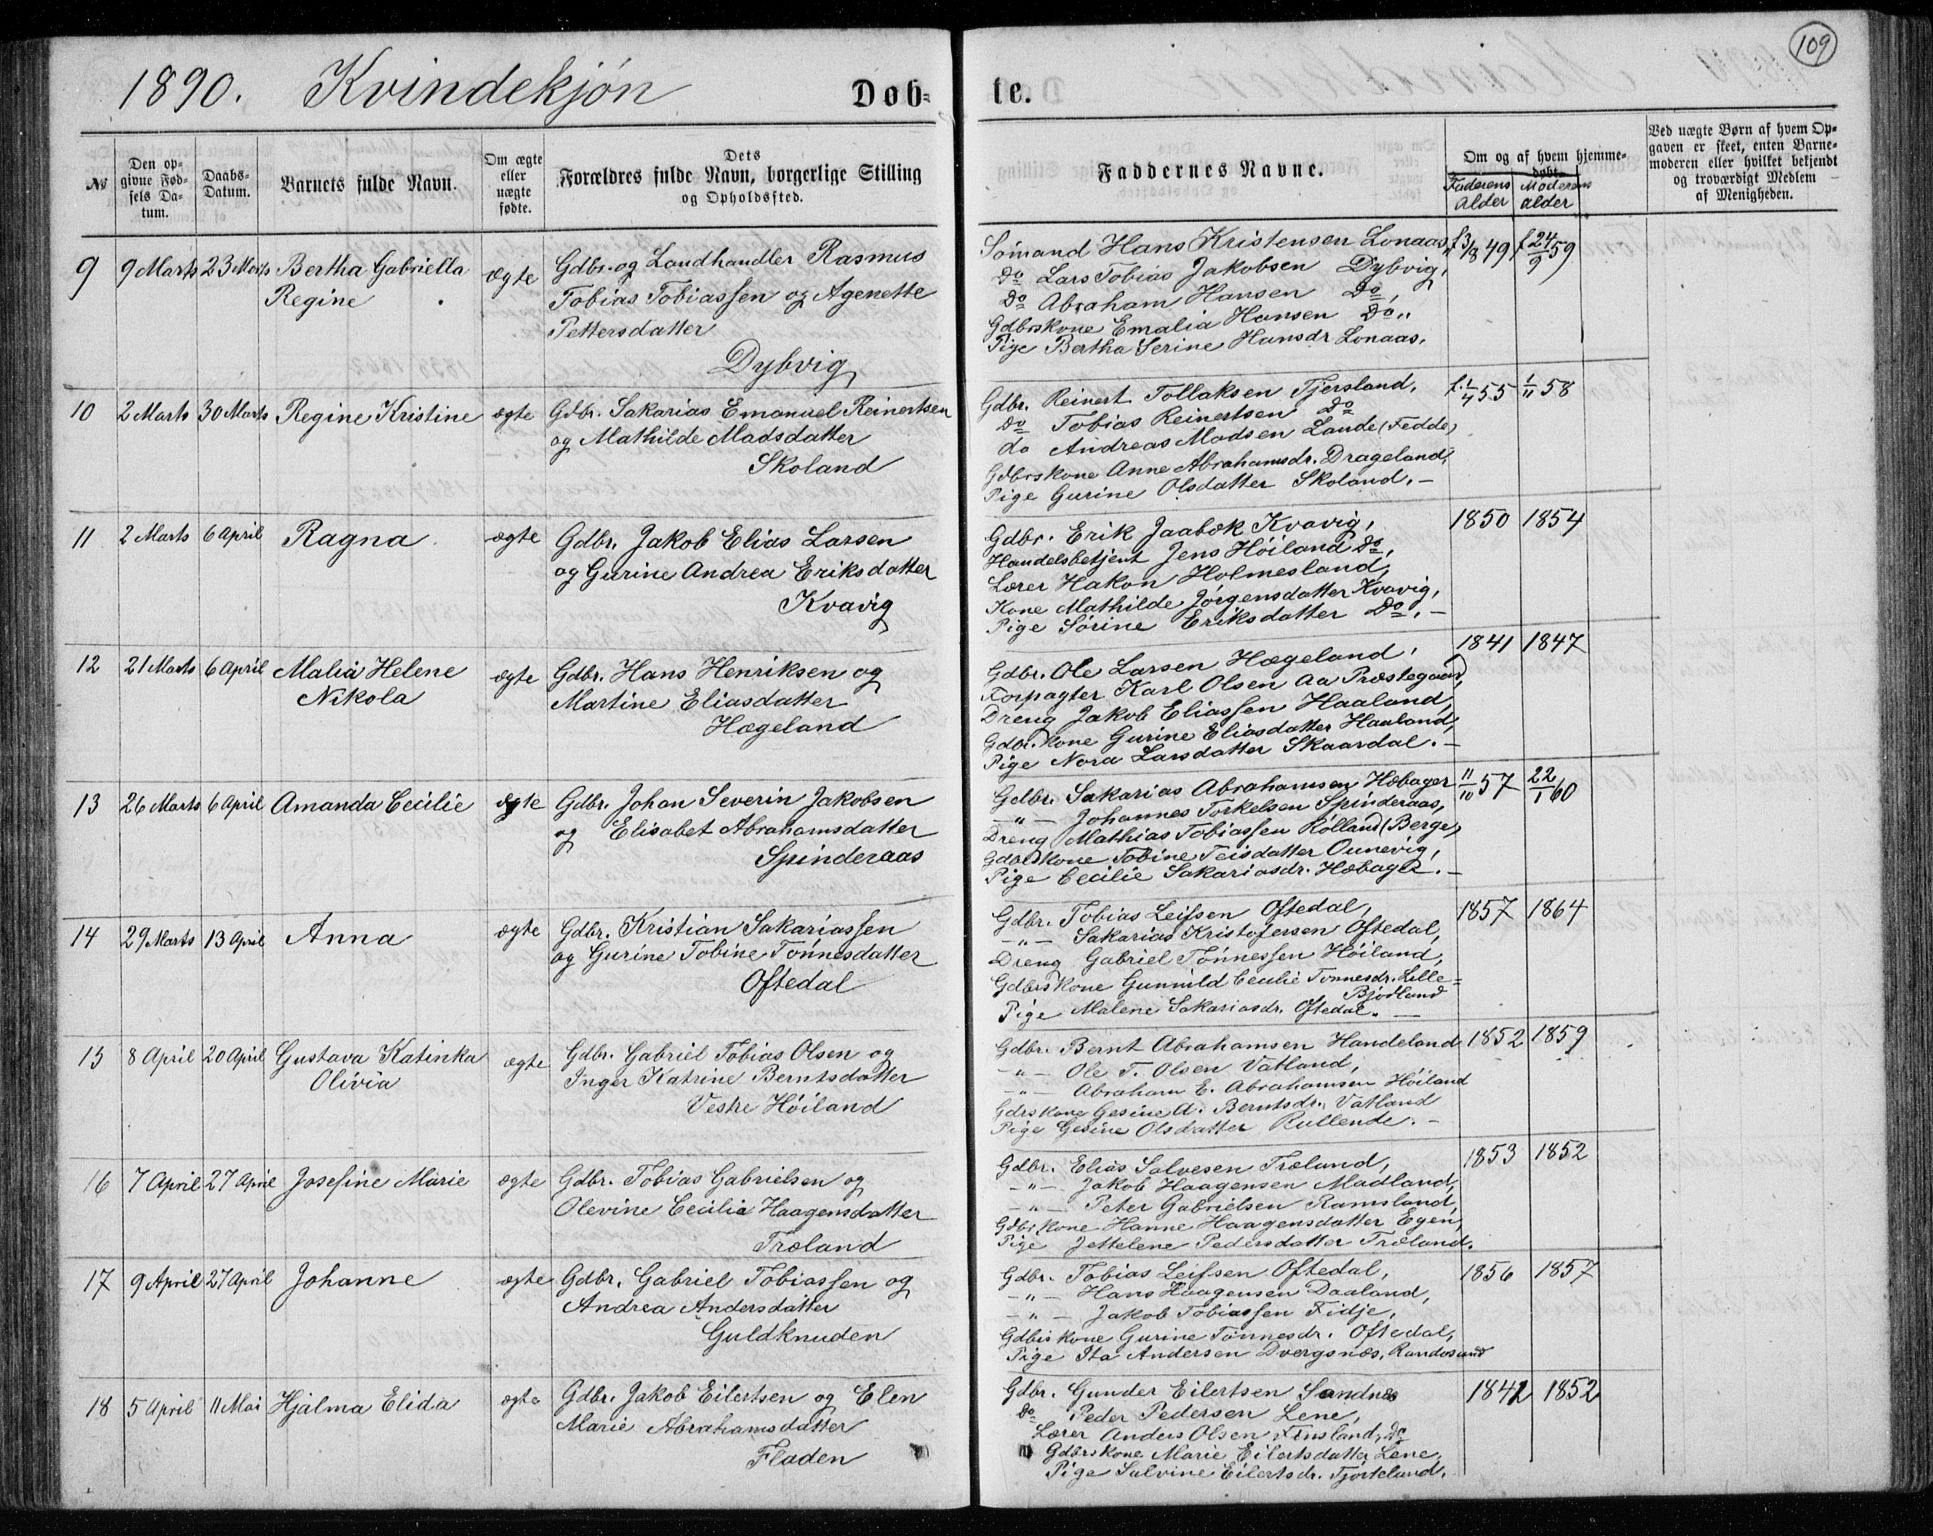 109
1890. Kvindekjøn Døb- te.
№
Den op-
givne Fød-
sels Da-
tum.
Daabs-
Datum.
Barnets fulde Navn.
Om ægte
eller
uægte
fødte.
Dets
Forældres fulde Navn, borgerlige Stilling
og Opholdssted.
Faddernes Navne.
Om og af hvem hjemme-
døbt.
Faderens Moderens
Alder alder
Ved uægte Børn af hvem Op-
gaven er skeet, enten Barne-
moderen eller hvilket bekjendt
og troværdigt Medlem
af Menigheden.
9 9 Marts 23 Marts Bertha Gabriella
Regine
ægte
Gdbr. og Landhandler Rasmus
Tobias Tobiassen og Agenette
Pettersdatter
Dybvig
Sømand Hans Kristensen Lonaas,
do Lars Tobias Jakobsen Dybvig,
do Abraham Hansen do,
Gdbrskone Emalia Hansen do,,
Pige Bertha Serine Hansdr Lonaas.
f 3/8 49 f 24/9 59
10 2 Marts 30 Marts Regine Kristine ægte
Gdbr. Sakarias Emanuel Reinertsen
og Mathilde Madsdatter
Skoland
Gdbr. Reinert Tollaksen Tjersland,
do Tobias Reinertsen do
do Andreas Madsen Laude (Fedde)
Gdbrskone Anne Abrahamsdr. Drageland,
Pige Gurine Olsdatter Skoland. –
f. 1/4 55 1/11 58
11 2 Marts 6 April Ragna ægte
Gdbr. Jakob Elias Larsen
og Gurine Andrea Eriksdatter
Kvavig
Gdbr. Erik Jaabæk Kvavig,
Handelsbetjent Jens Høiland do,
Lærer Hakon Holmesland,
Kone Mathilde Jørgensdatter Kvavig,
Pige Sørine Eriksdatter do. –
1850 1854
12 21 Marts 6 April Malia Helene
Nikola
ægte
Gdbr. Hans Henriksen og
Martine Eliasdatter
Hægeland
Gdbr. Ole Larsen Hægeland,
Forpagter Karl Olsen Aa Præstegaard,
Dreng Jakob Eliassen Haaland,
Gdbr. kone Gurine Eliasdatter Haaland,
Pige Nora Larsdatter Skaardal. –
1841 1847
13 26 Marts 6 April Amanda Cecilie ægte
Gdbr. Johan Severin Jakobsen
og Elisabet Abrahamsdatter
Spinderaas
Gdbr. Sakarias Abrahamsen Hæbager
– " – Johannes Torkelsen Spinderaas,
Dreng Mathias Tobiassen Rølland (Berge)
Gdbrskone Tobine Teisdatter Ounevig,
Pige Cecilie Sakariasdr. Hæbager. –
11/10 57 22/1 60
14 29 Marts 13 April Anna ægte
Gdbr. Kristian Sakariassen
og Gurine Tobine Tønnesdatter
Oftedal
Gdbr. Tobias Leifsen Oftedal,
– " – Sakarias Kristofersen Oftedal,
Dreng Gabriel Tønnessen Høiland,
Gdbrskone Gunnild Cecilie Tønnesdr. Lille=
Bjødland
Pige Malene Sakariasdr. Oftedal. –
1857 1864
15 8 April 20 April Gustava Katinka
Olivia
ægte
Gdbr. Gabriel Tobias Olsen og
Inger Katrine Berntsdatter
Vestre Høiland
Gdbr. Bernt Abrahamsen Handeland
– " – Ole T. Olsen Vatland,
– " – Abraham E. Abrahamsen Høiland
Gdrskone Gesine A. Berntsdr. Vatland
Pige Gesine Olsdatter Rullende. –
1852 1859
16 7 April 27 April Josefine Marie ægte
Gdbr. Tobias Gabrielsen og
Olevine Cecilia Haagensdatter
Træland
Gdbr. Elias Salvesen Træland,
– " – Jakob Haagensen Madland,
– " – Peter Gabrielsen Ramsland,
Gdbrskone Hanne Haagensdatter Egen,
Pige Jettelene Pedersdatter Træland.
1853 1852
17 9 April 27 April Johanne ægte
Gdbr. Gabriel Tobiassen og
Andrea Andersdatter
Guldknuden
Gdbr. Tobias Leifsen Oftedal,
– " – Hans Haagensen Daaland,
– " – Jakob Tobiassen Fidje,
Gdbrskone Gurine Tønnesdr. Oftedal,
Pige Ita Andersen Dvergsnæs, Randøsund
1856 1857
18 5 April 11 Mai Hjalma Elida ægte
Gdbr. Jakob Eilertsen og Elen
Marie Abrahamsdatter
Fladen
Gdbr. Gunder Eilertsen Sandnes
do Peder Pedersen Lene,
Lærer Anders Olsen Finsland, do
Gdbrskone Marie Eilertsdatter Lene,
Pige Salvine Eilertsdr. Tjorteland.
1841 1852